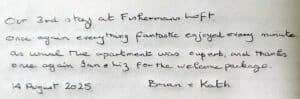 Our 3rd stay at Fishermans Loft
once again everything fantastic enjoyed every minute
as usual the apartment was superb, and thanks
once again Ian & Liz for the welcome package.
14 August 2025. Brian & Kath.